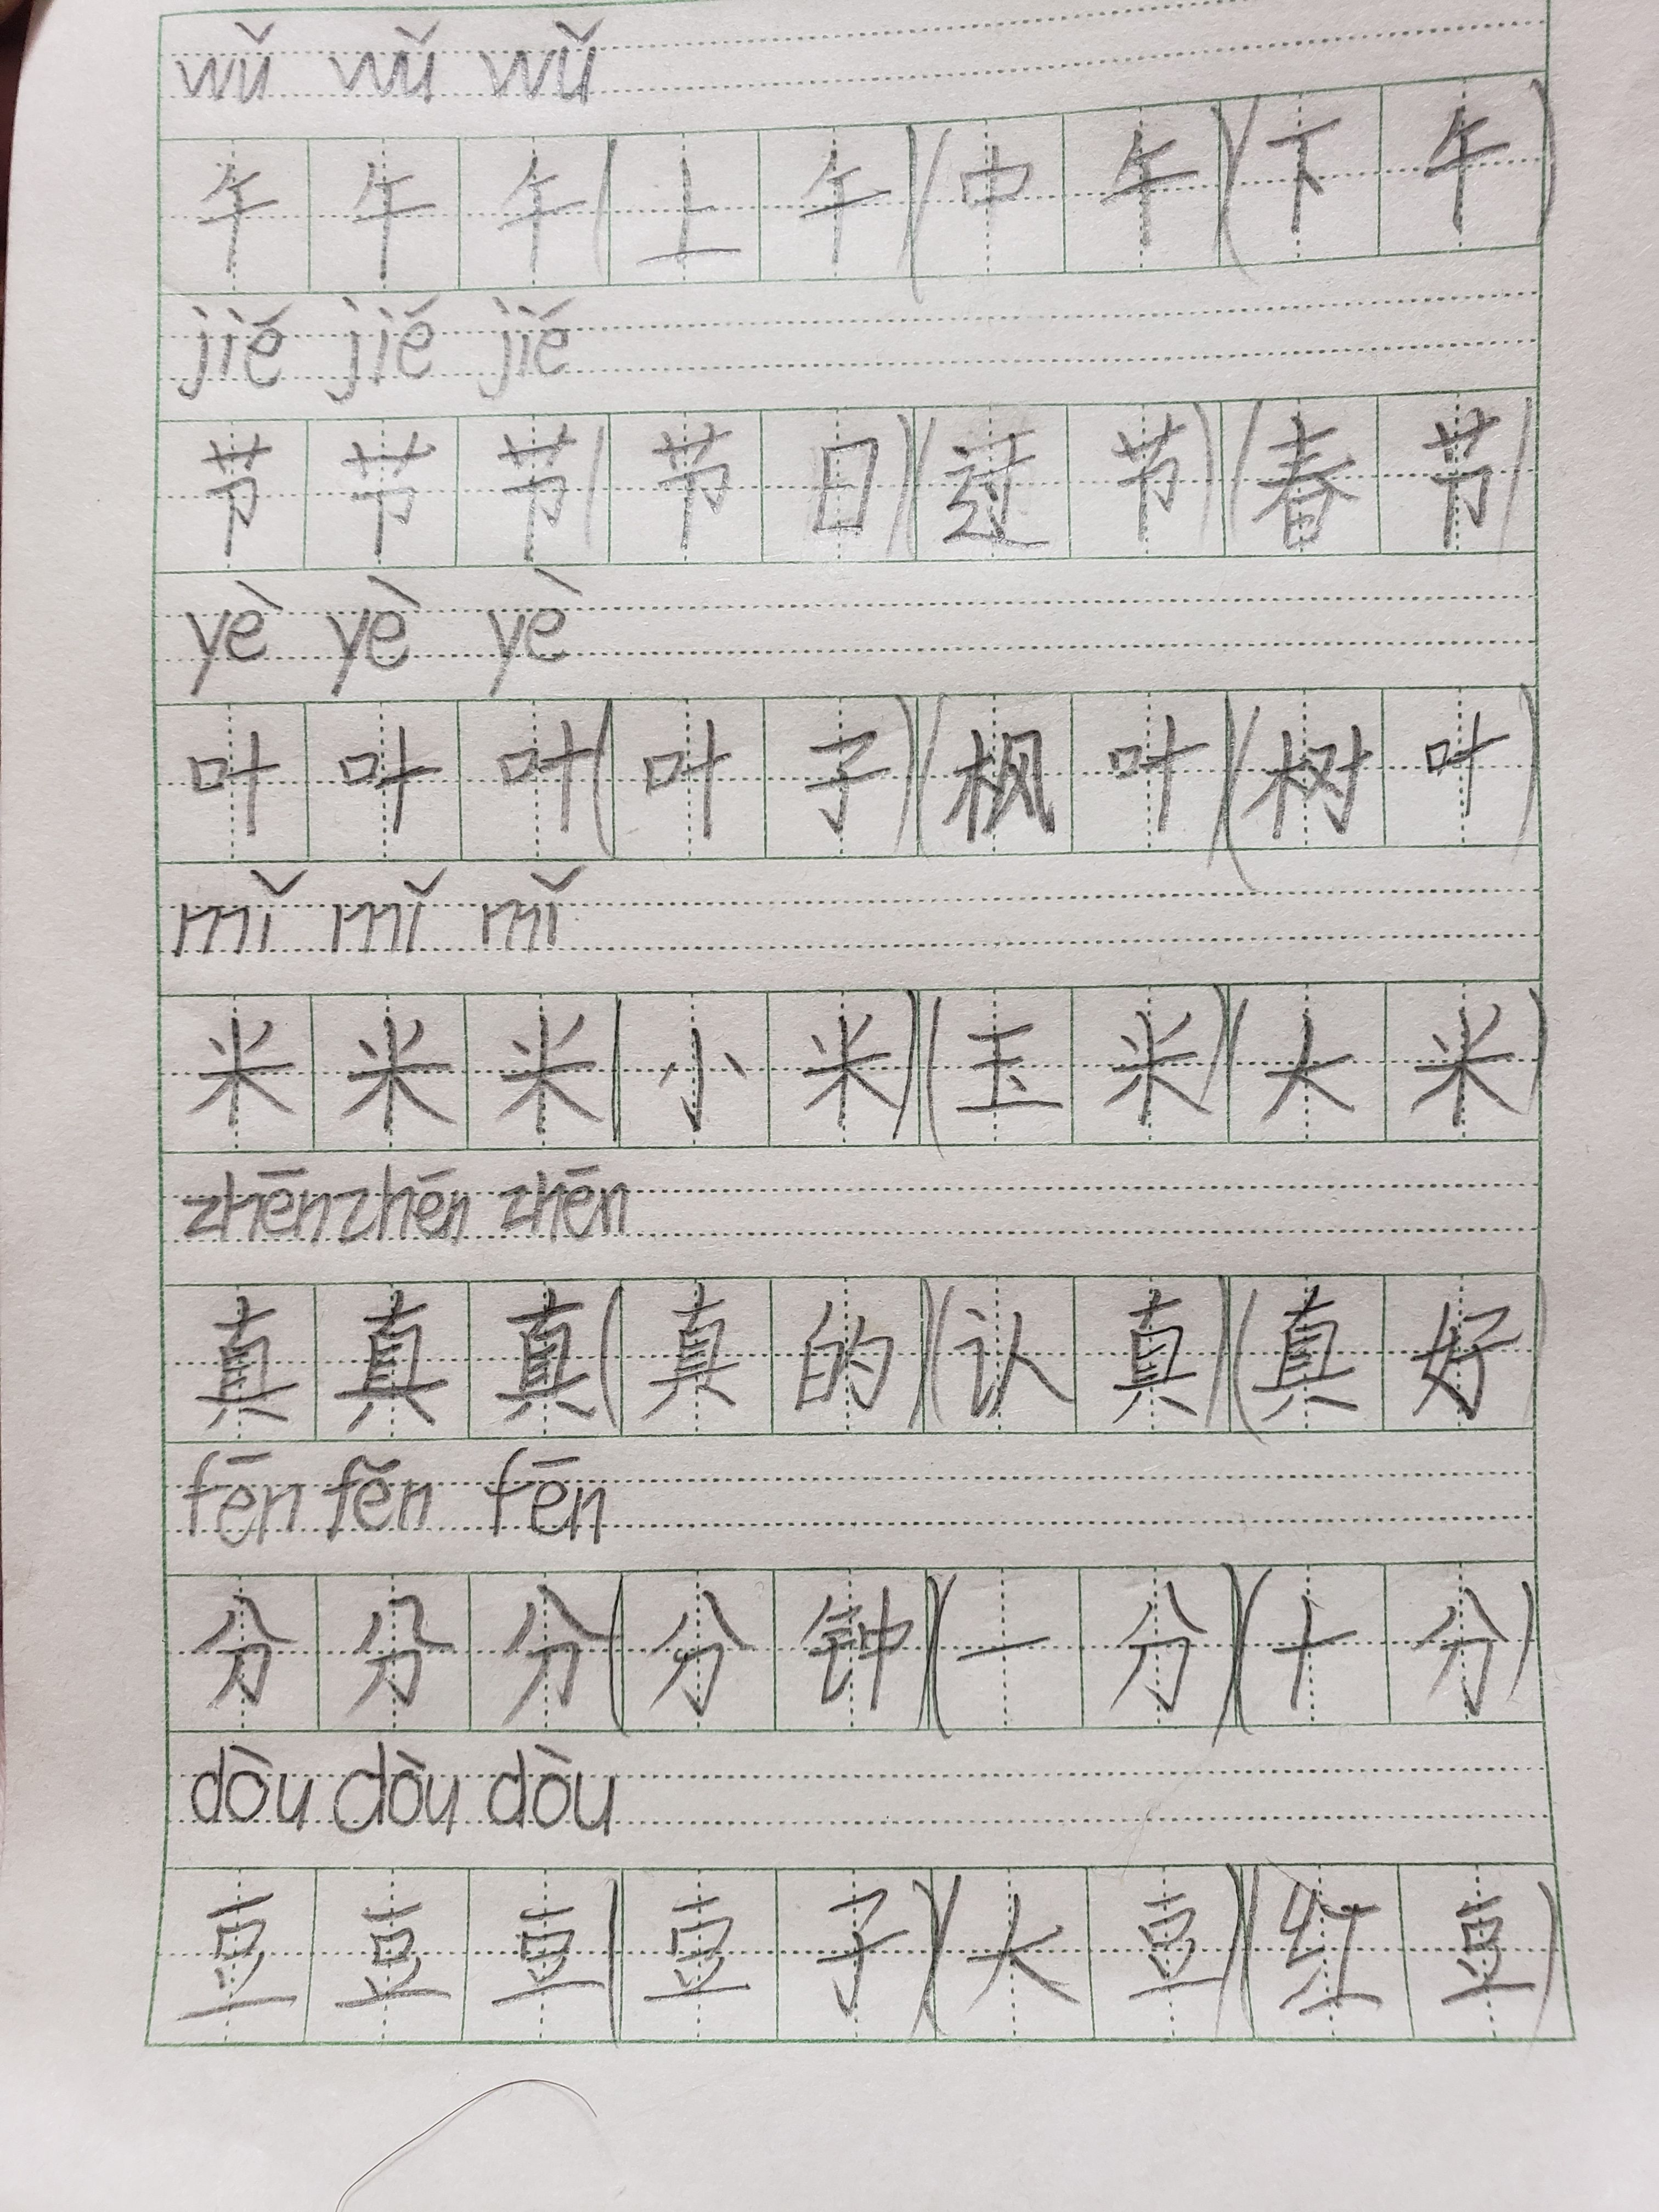 wǔ wǔ wǔ
午午午(上午)(中午)(下午)
jié jié jié
节节节(节日)(过节)(春节)
yè yè yè
叶叶叶(叶子)(枫叶)(树叶)
mǐ mǐ mǐ
米米米(小米)(玉米)(大米)
zhēn zhēn zhēn
真真真(真的)(认真)(真好)
fēn fēn fēn
分分分(分钟)(一分)(十分)
dòu dòu dòu
豆豆豆(豆子)(大豆)(红豆)